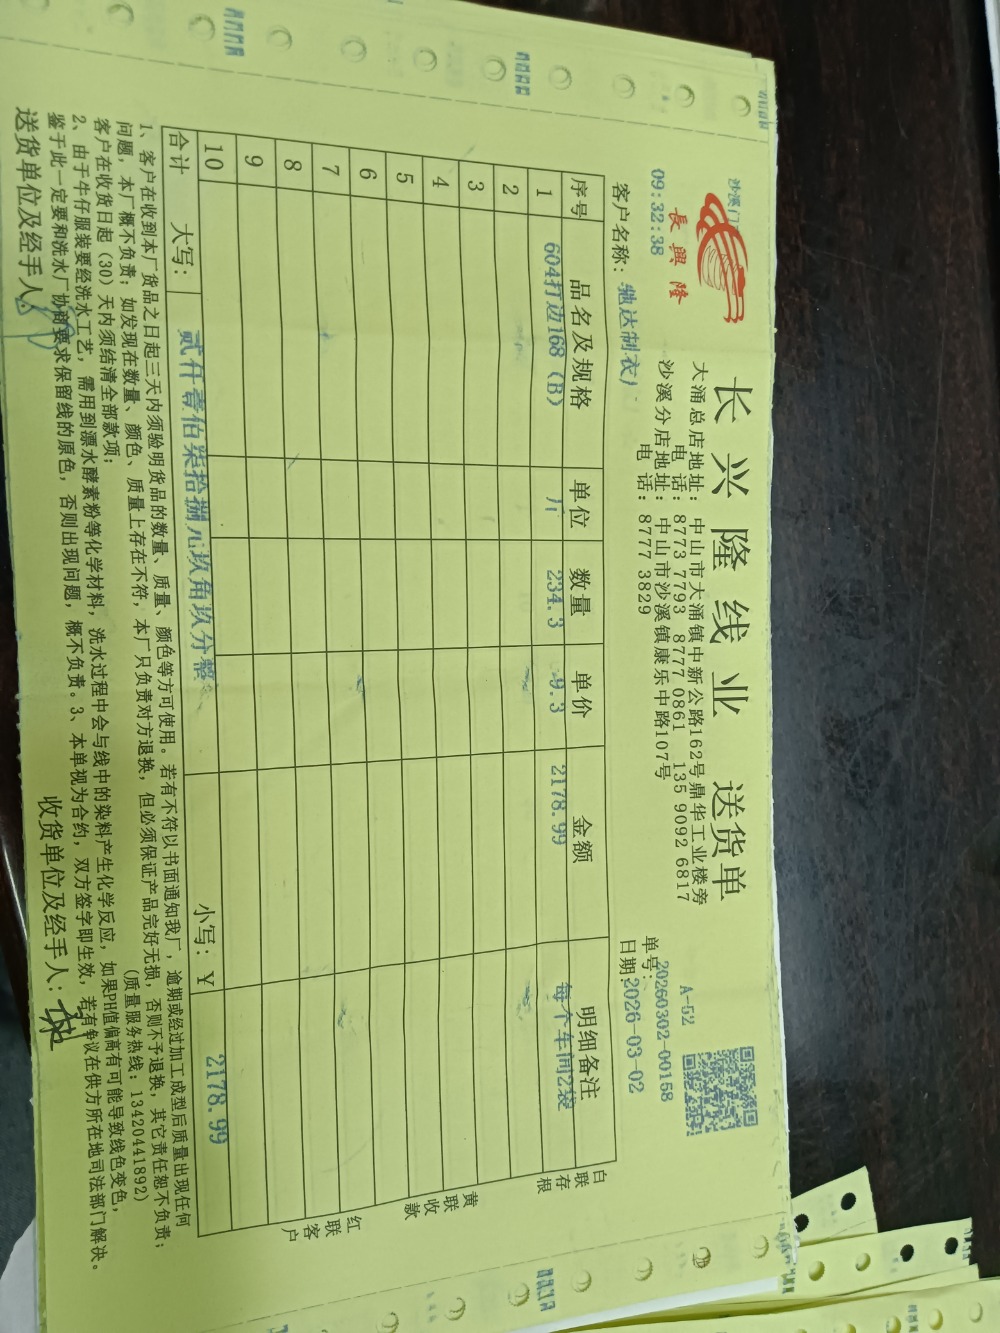 沙溪门
長興隆
09:32:38
长兴隆线业 送货单
大涌总店地址：中山市大涌镇中新公路162号鼎华工业楼旁
电 话：8773 7793 8777 0861 135 9092 6817
沙溪分店地址：中山市沙溪镇康乐中路107号
电 话：8777 3829
A-52
单号：20260302-00158
日期：2026-03-02
客户名称：驰达制衣厂
序号 品名及规格 单位 数量 单价 金额 明细备注
1 604打边168（B） 斤 234.3 9.3 2178.99 每个车间2袋
2
3
4
5
6
7
8
9
10
合计 大写：贰仟壹佰柒拾捌元玖角玖分整 小写：￥ 2178.99
白联存根
黄联收款
红联客户
1、客户在收到本厂货品之日起三天内须验明货品的数量、质量、颜色等方可使用。若有不符以书面通知我厂，逾期或经过加工成型后质量出现任何
问题，本厂概不负责；如发现在数量、颜色、质量上存在不符，本厂只负责对方退换，但必须保证产品完好无损，否则不予退换，其它责任恕不负责；
客户在收货日起（30）天内须结清全部款项； （质量服务热线：13420441892）
2、由于牛仔服装要经洗水工艺，需用到漂水酵素粉等化学材料，洗水过程中会与线中的染料产生化学反应，如果PH值偏高有可能导致线色变色，
鉴于此一定要和洗水厂协商要求保留线的原色，否则出现问题，概不负责。3、本单视为合约，双方签字即生效，若有争议在供方所在地司法部门解决。
送货单位及经手人：
收货单位及经手人：